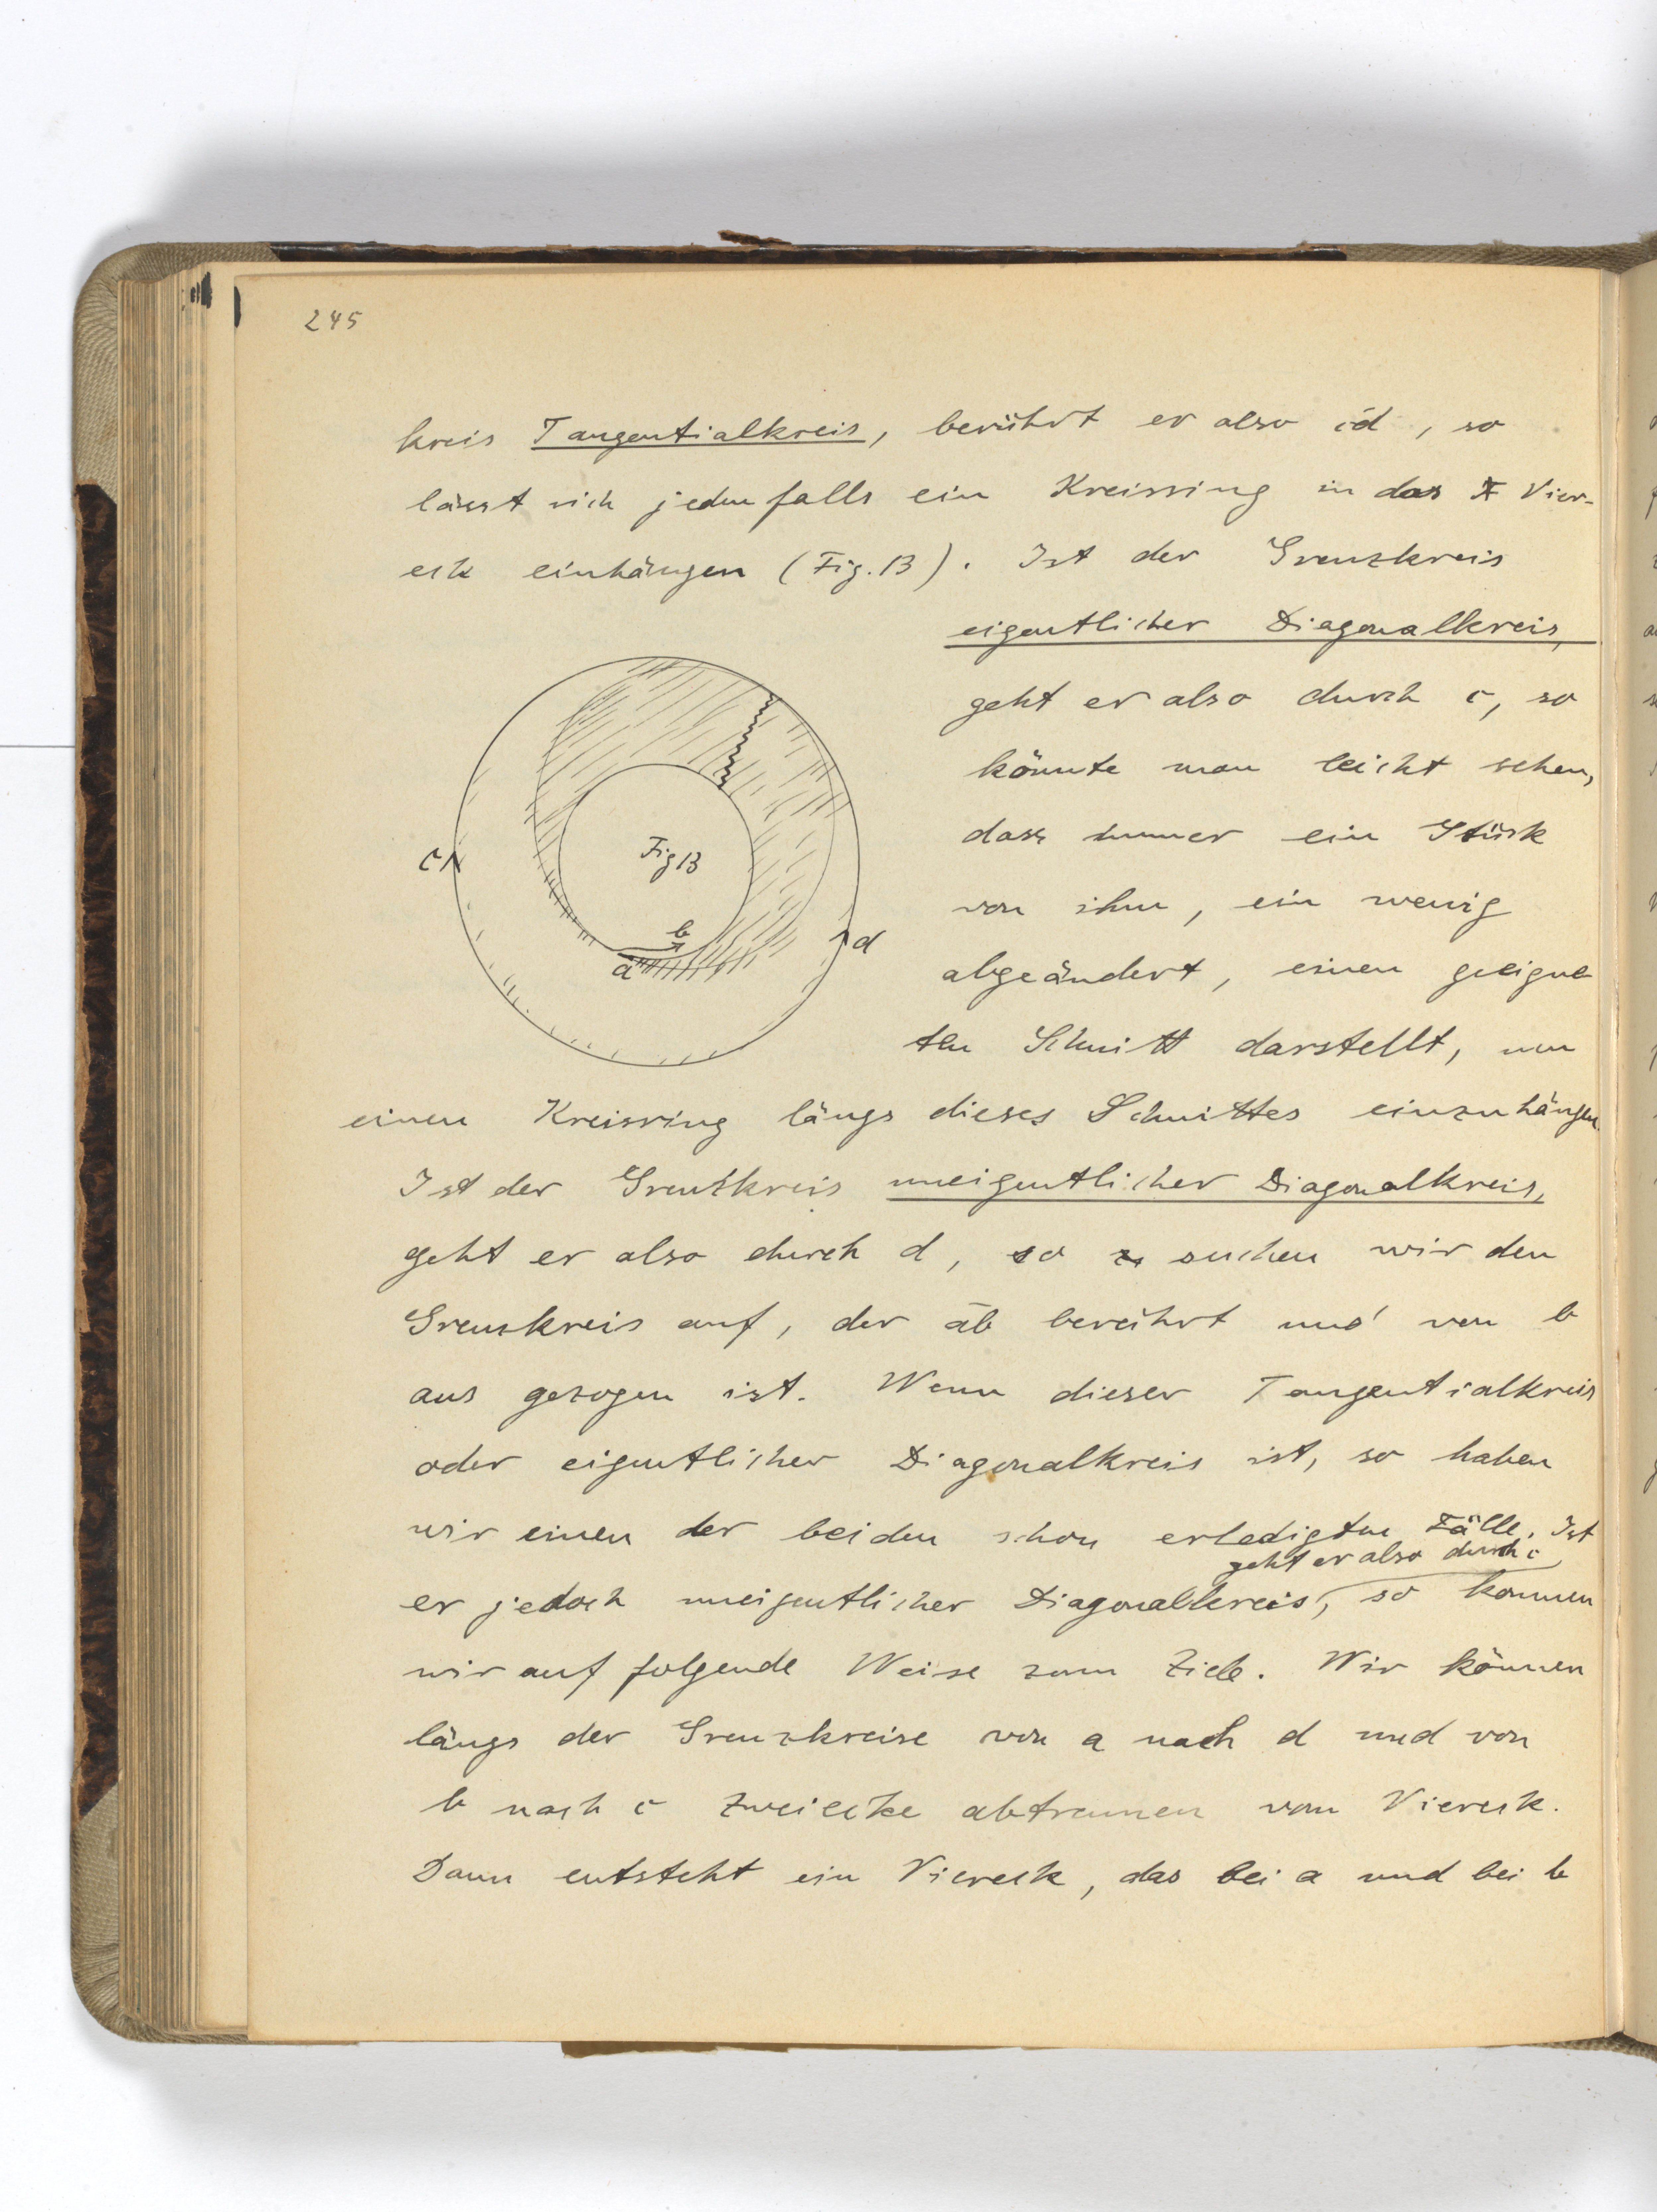 245
kreis Tangentialkreis, berührt er also c̄d, so
lässt sich jedenfalls ein Kreisring in das Vier-
eck einhängen (Fig. 13). Ist der Grenzkreis
eigentlicher Diagonalkreis,
geht er also durch c, so
könnte man leicht sehen,
dass immer ein Stück
von ihm, ein wenig
abgeändert, einen geeigne
ten Schnitt darstellt, um
einen Kreisring längs dieses Schnittes einzuhängen.
c
Fig 13
b
a
d
Ist der Grenzkreis uneigentlicher Diagonalkreis,
geht er also durch d, so suchen wir den
Grenzkreis auf, der āb berührt und von b
aus gezogen ist. Wenn dieser Tangentialkreis
oder eigentlicher Diagonalkreis ist, so haben
wir einen der beiden schon erledigten Fälle. Ist
geht er also durch c
er jedoch uneigentlicher Diagonalkreis, so kommen
wir auf folgende Weise zum Ziele. Wir können
längs der Grenzkreise von a nach d und von
b nach c Zweiecke abtrennen vom Viereck.
Dann entsteht ein Viereck, das bei a und bei b